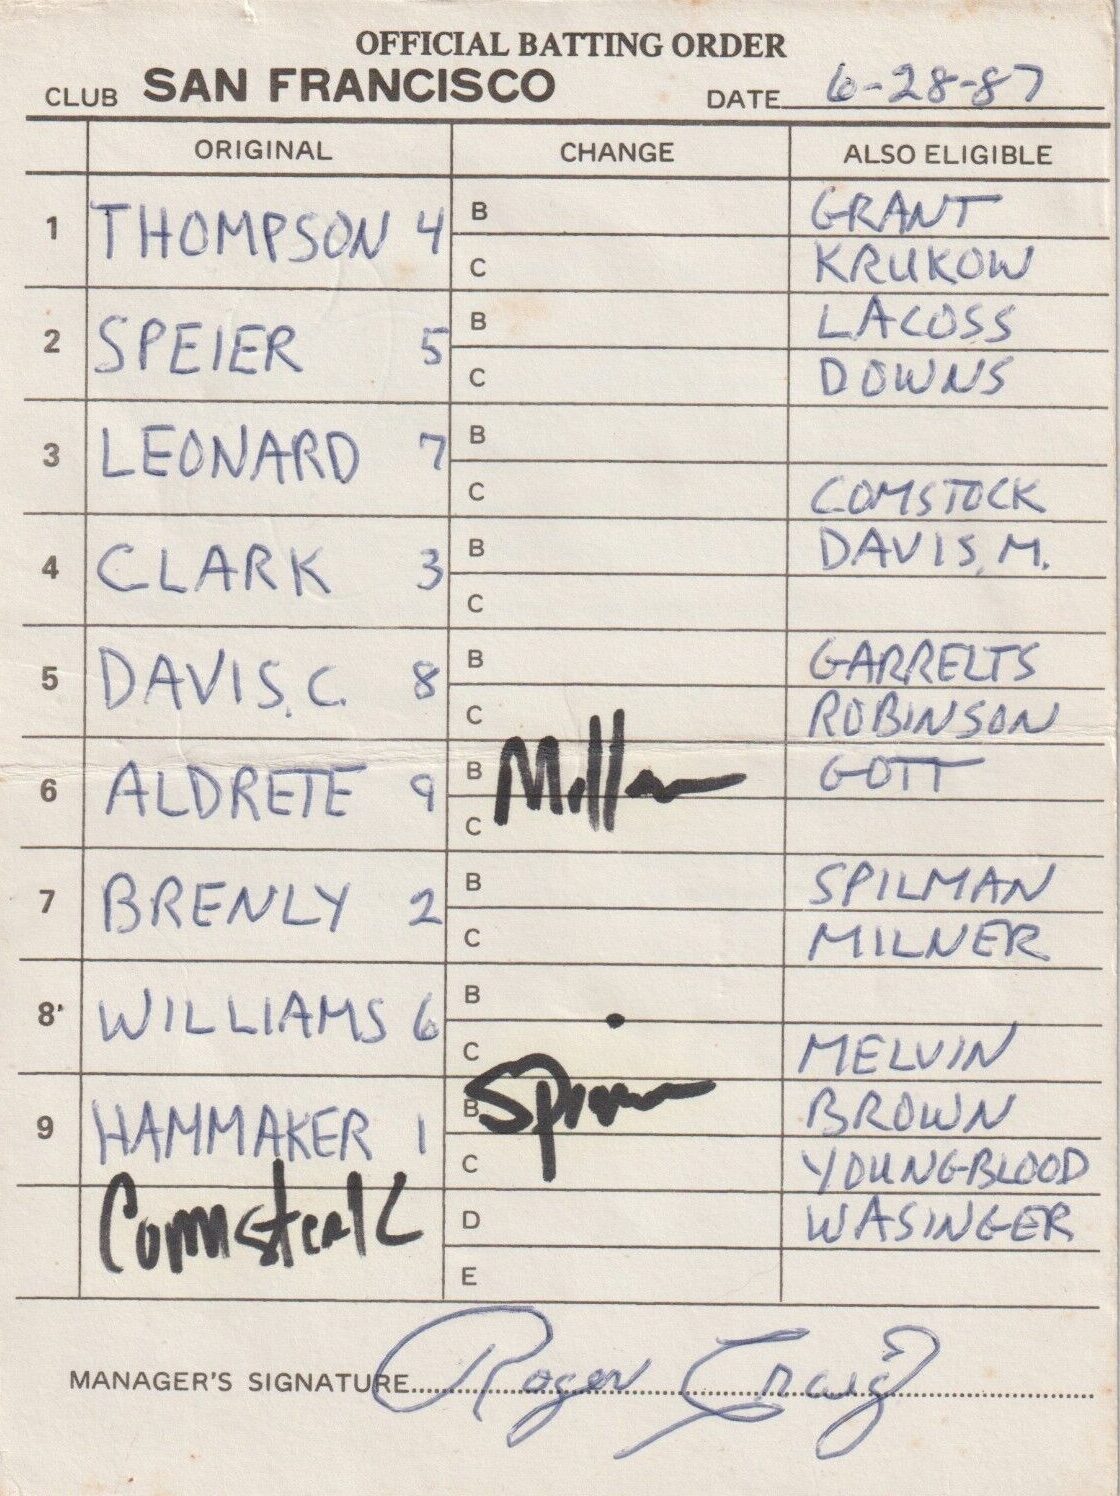 OFFICIAL BATTING ORDER
CLUB SAN FRANCISCO DATE 6-28-87
ORIGINAL CHANGE ALSO ELIGIBLE
1 THOMPSON 4 B GRANT
C KRUKOW
2 SPEIER 5 B LACOSS
C DOWNS
3 LEONARD 7 B
C COMSTOCK
4 CLARK 3 B DAVIS, M.
C
5 DAVIS, C. 8 B GARRELTS
C ROBINSON
6 ALDRETE 9 B GOTT
C
7 BRENLY 2 B SPILMAN
C MILNER
8 WILLIAMS 6 B
C MELVIN
9 HAMMAKER 1 B BROWN
C YOUNGBLOOD
D WASINGER
E
MANAGER'S SIGNATURE Roger Craig